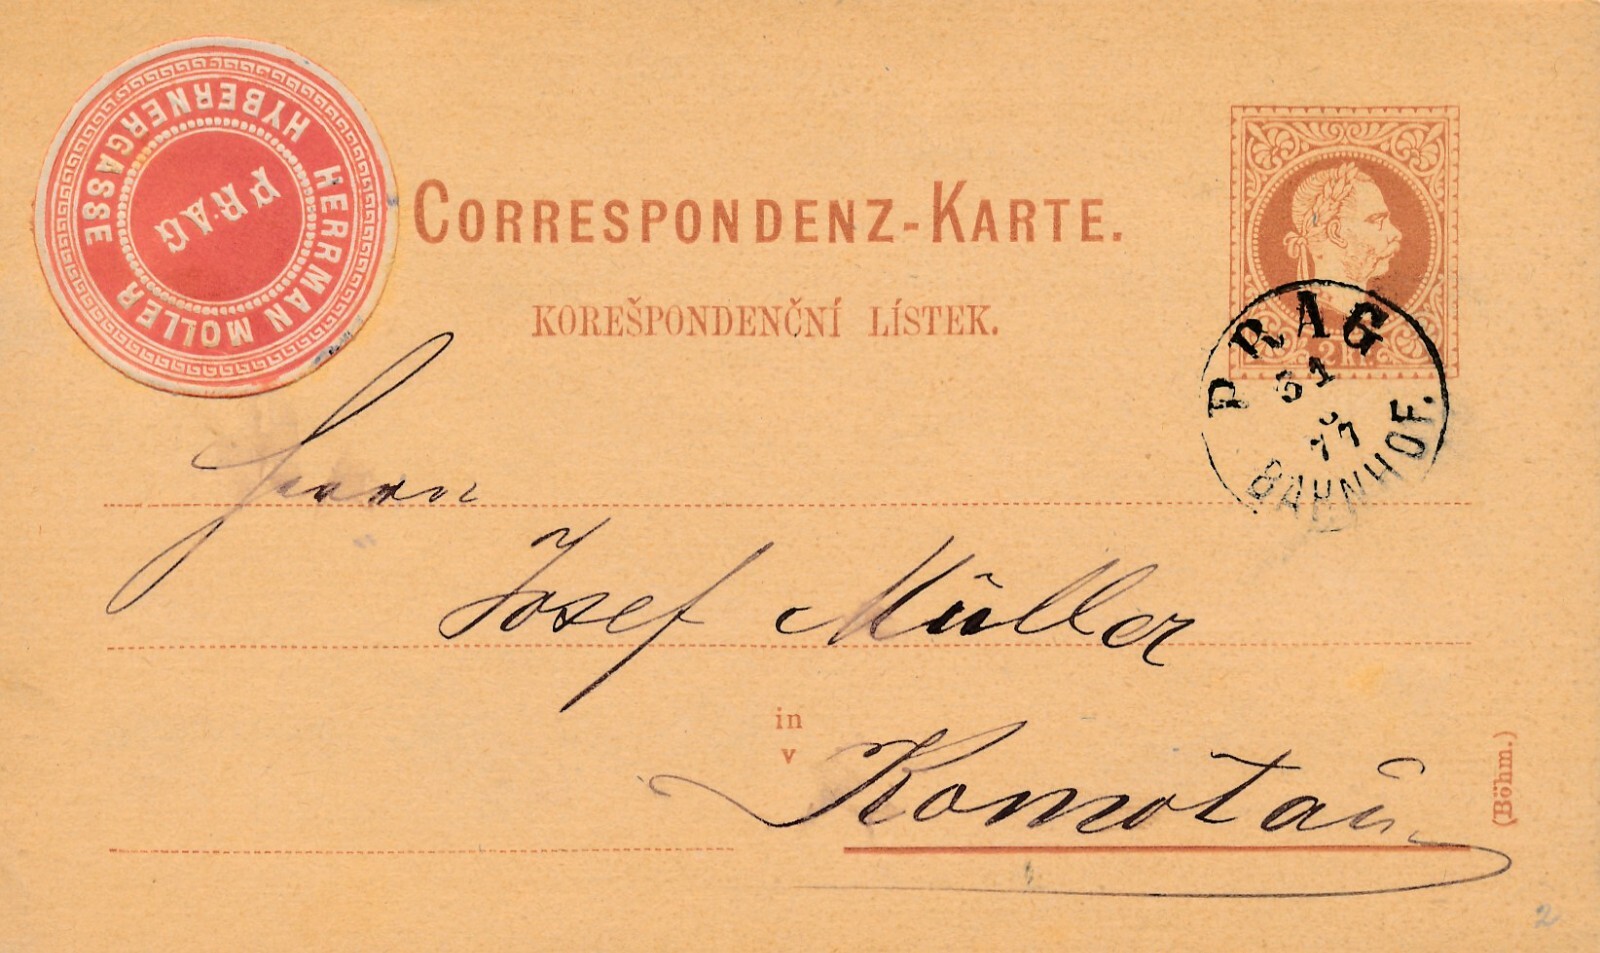 HERRMAN MOLLER
HYBERNERGASSE
PRAG
CORRESPONDENZ-KARTE.
KOREŠPONDENČNÍ LÍSTEK.
2 Kr.
PRAG
31
77
BAHNHOF.
Herrn
Josef Müller
in
v
Komotau
(Böhm.)
2